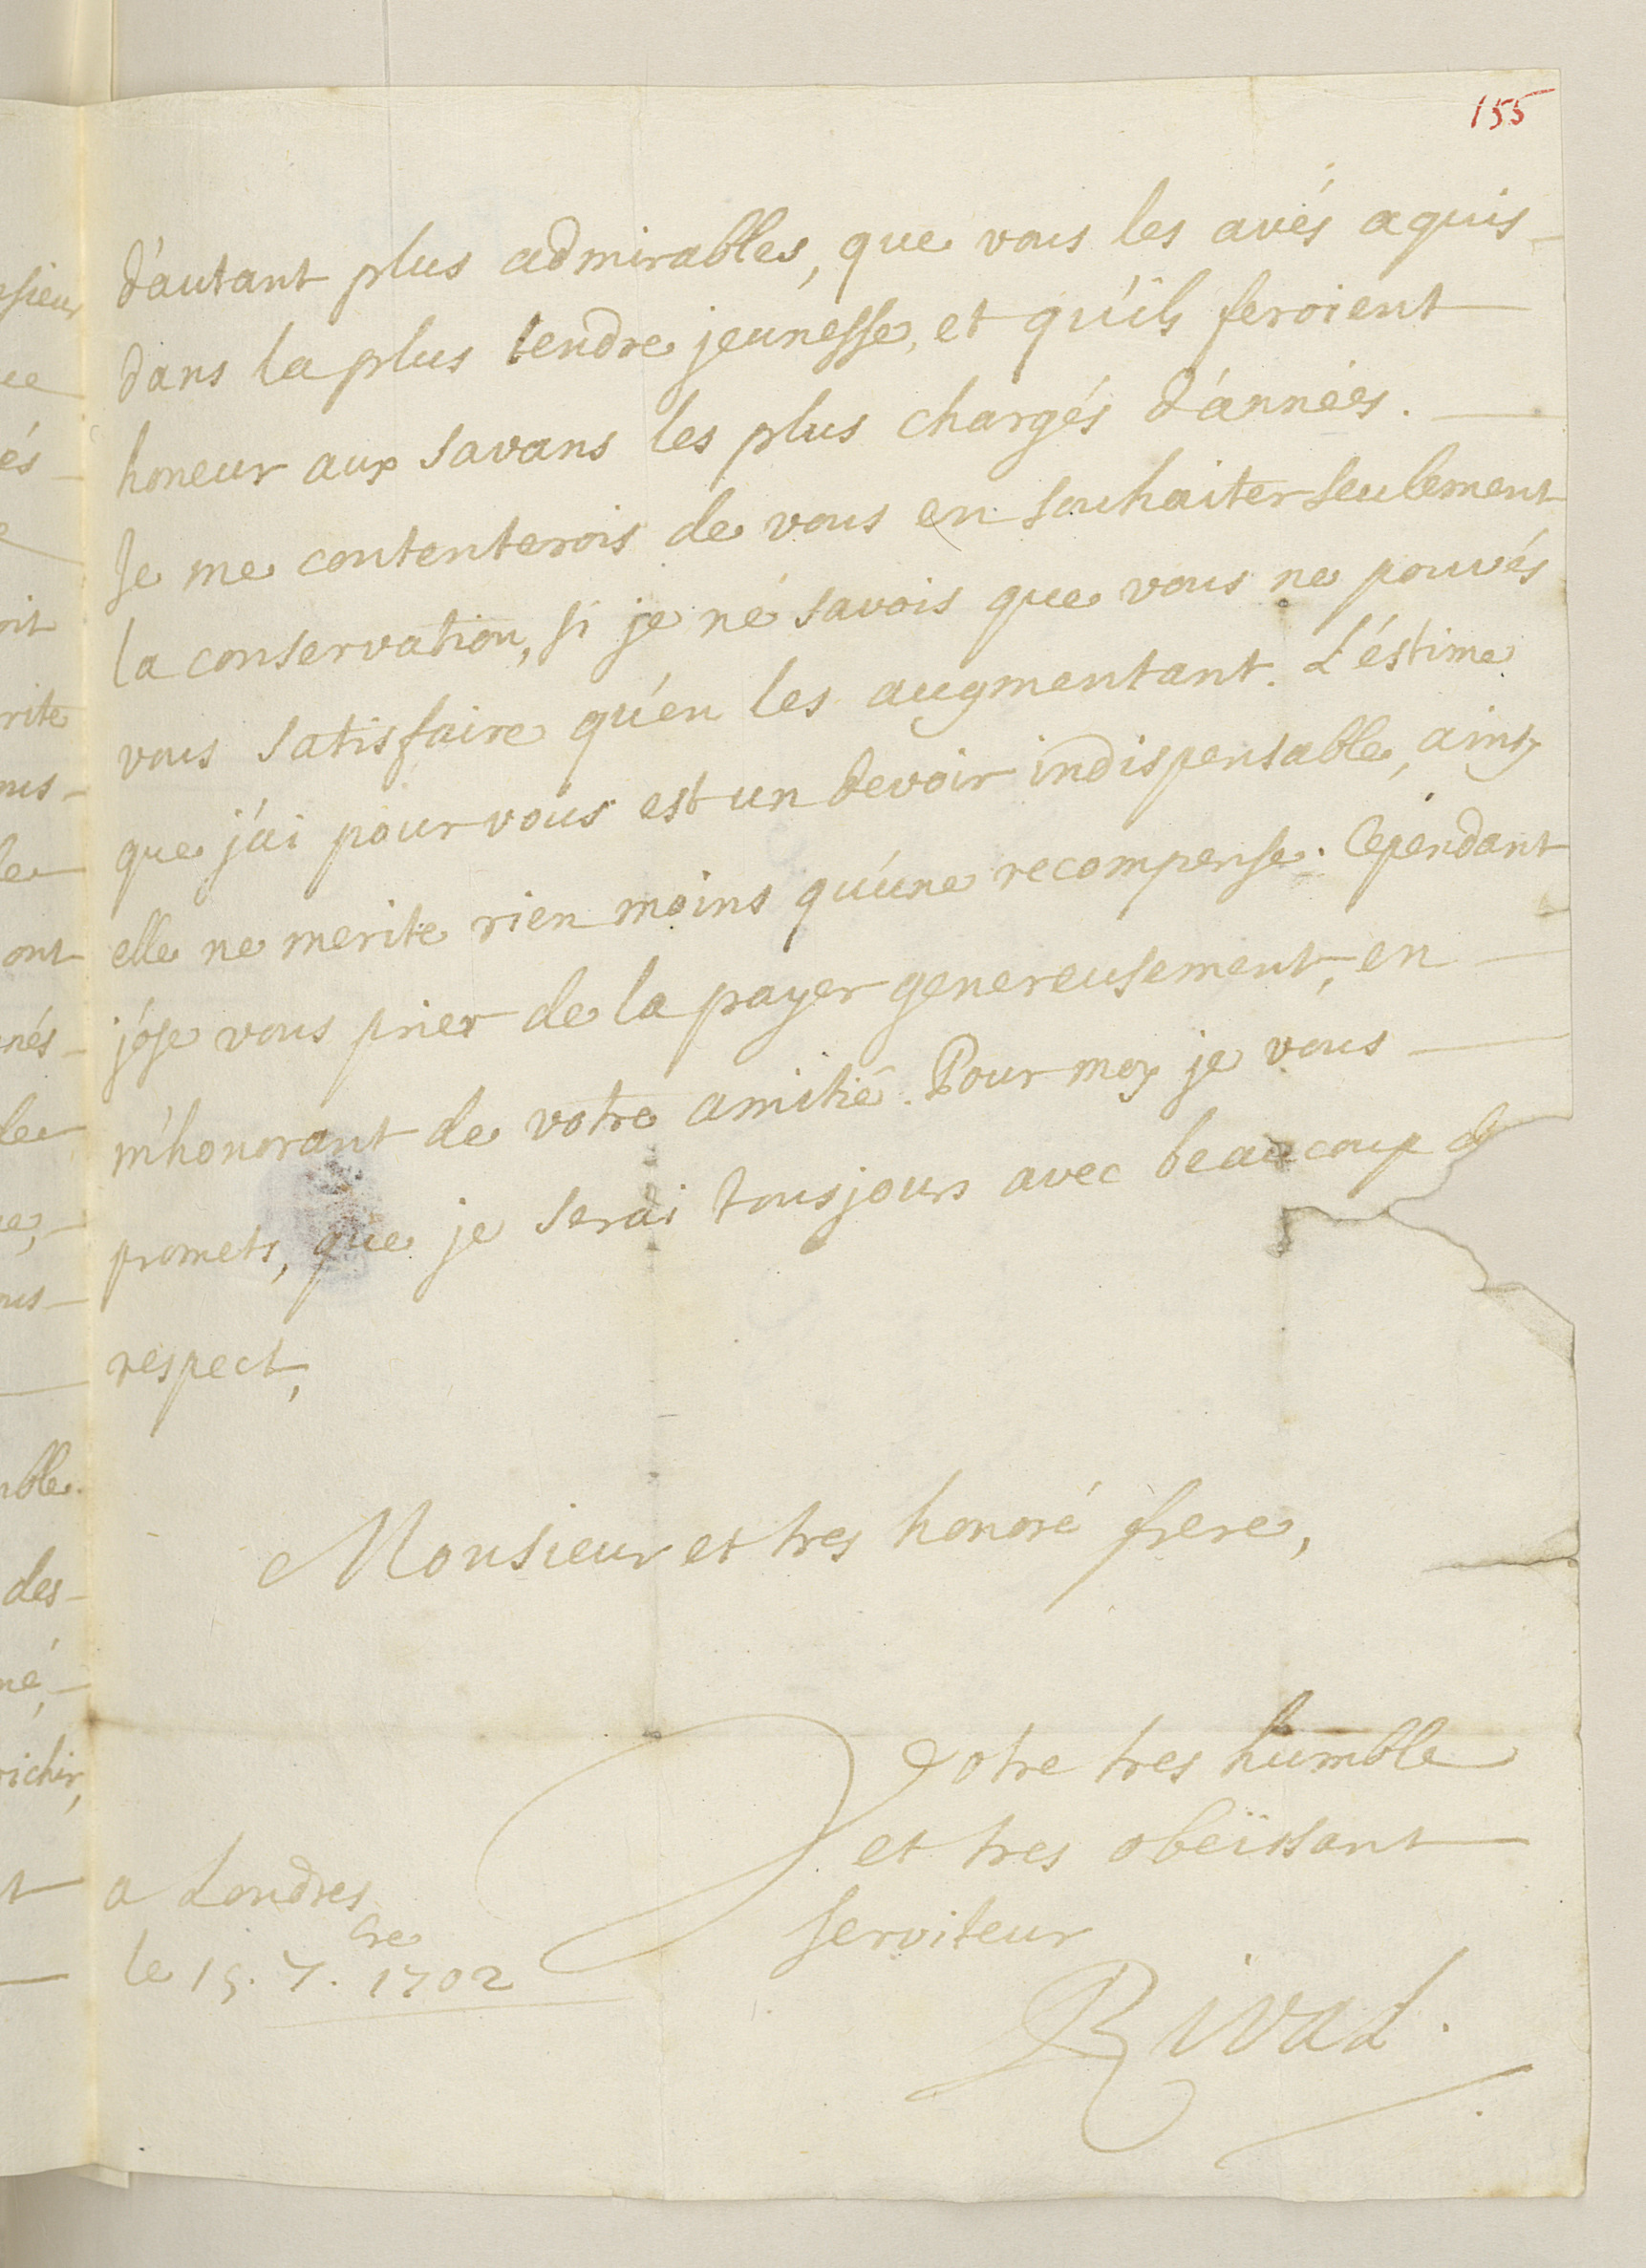 155
d'autant plus admirables, que vous les avés aquis
dans la plus tendre jeunesse, et qu'ils feroient
honeur aux savans les plus chargés d'années.
Je me contenterois de vous en souhaiter seulement
la conservation, si je ne savois que vous ne pouvés
vous satisfaire qu'en les augmentant. L'éstime
que j'ai pour vous est un devoir indispensable, ainsy
elle ne merite rien moins qu'une recompense. Cependant
j'ose vous prier de la payer genereusement, en
m'honorant de votre amitié. Pour moy je vous
promets, que je serai tousjours avec beaucoup de
respect,
Monsieur et tres honoré frere,
Votre tres humble
et tres obeïssant
serviteur
Rival.
a Londres
le 15. 7.bre 1702